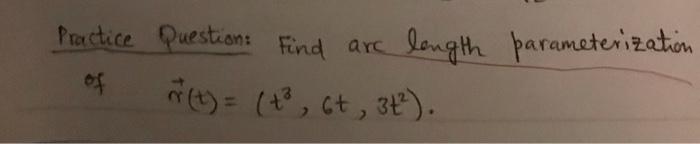 Practice Question: Find arc length parameterization
of r⃗(t) = (t³, 6t, 3t²).